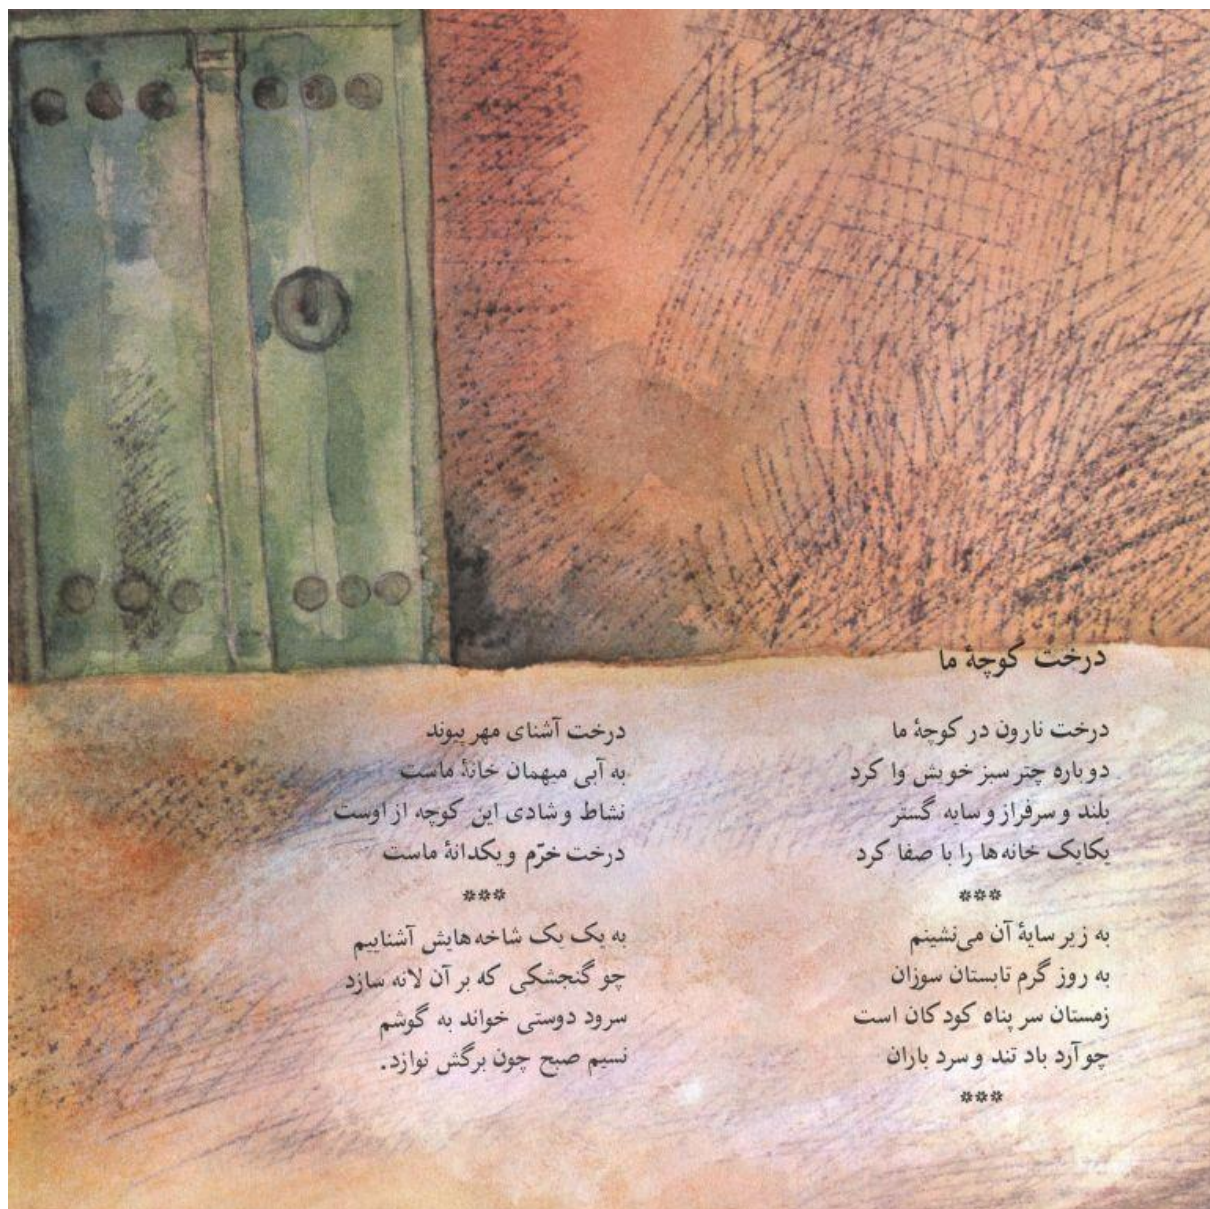 درخت کوچهٔ ما
درخت نارون در کوچهٔ ما
دوباره چتر سبز خویش وا کرد
بلند و سرفراز و سایه گستر
یکایک خانه‌ها را با صفا کرد
***
به زیر سایهٔ آن می‌نشینم
به روز گرم تابستان سوزان
زمستان سر پناه کودکان است
چو آرد باد تند و سرد باران
***
درخت آشنای مهر پیوند
به آبی میهمان خانهٔ ماست
نشاط و شادی این کوچه از اوست
درخت خرّم و یکدانهٔ ماست
***
به یک یک شاخه‌هایش آشناییم
چو گنجشکی که بر آن لانه سازد
سرود دوستی خواند به گوشم
نسیم صبح چون برگش نوازد.